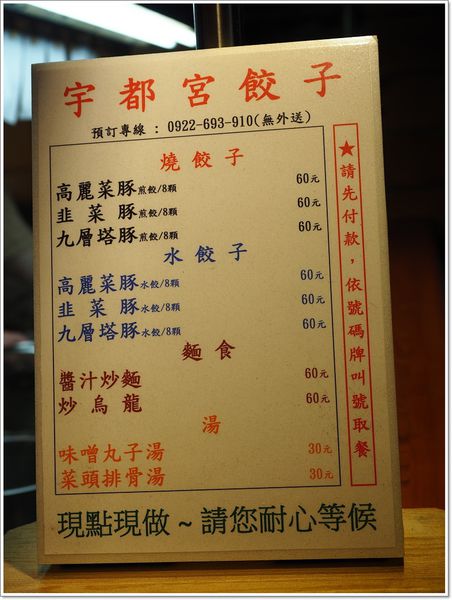 宇都宮餃子
預訂專線：0922-693-910(無外送)
燒餃子
高麗菜豚煎餃/8顆 60元
韭菜豚煎餃/8顆 60元
九層塔豚煎餃/8顆 60元
水餃子
高麗菜豚水餃/8顆 60元
韭菜豚水餃/8顆 60元
九層塔豚水餃/8顆 60元
麵食
醬汁炒麵 60元
炒烏龍 60元
湯
味噌丸子湯 30元
菜頭排骨湯 30元
★請先付款，依號碼牌叫號取餐
現點現做~請您耐心等候